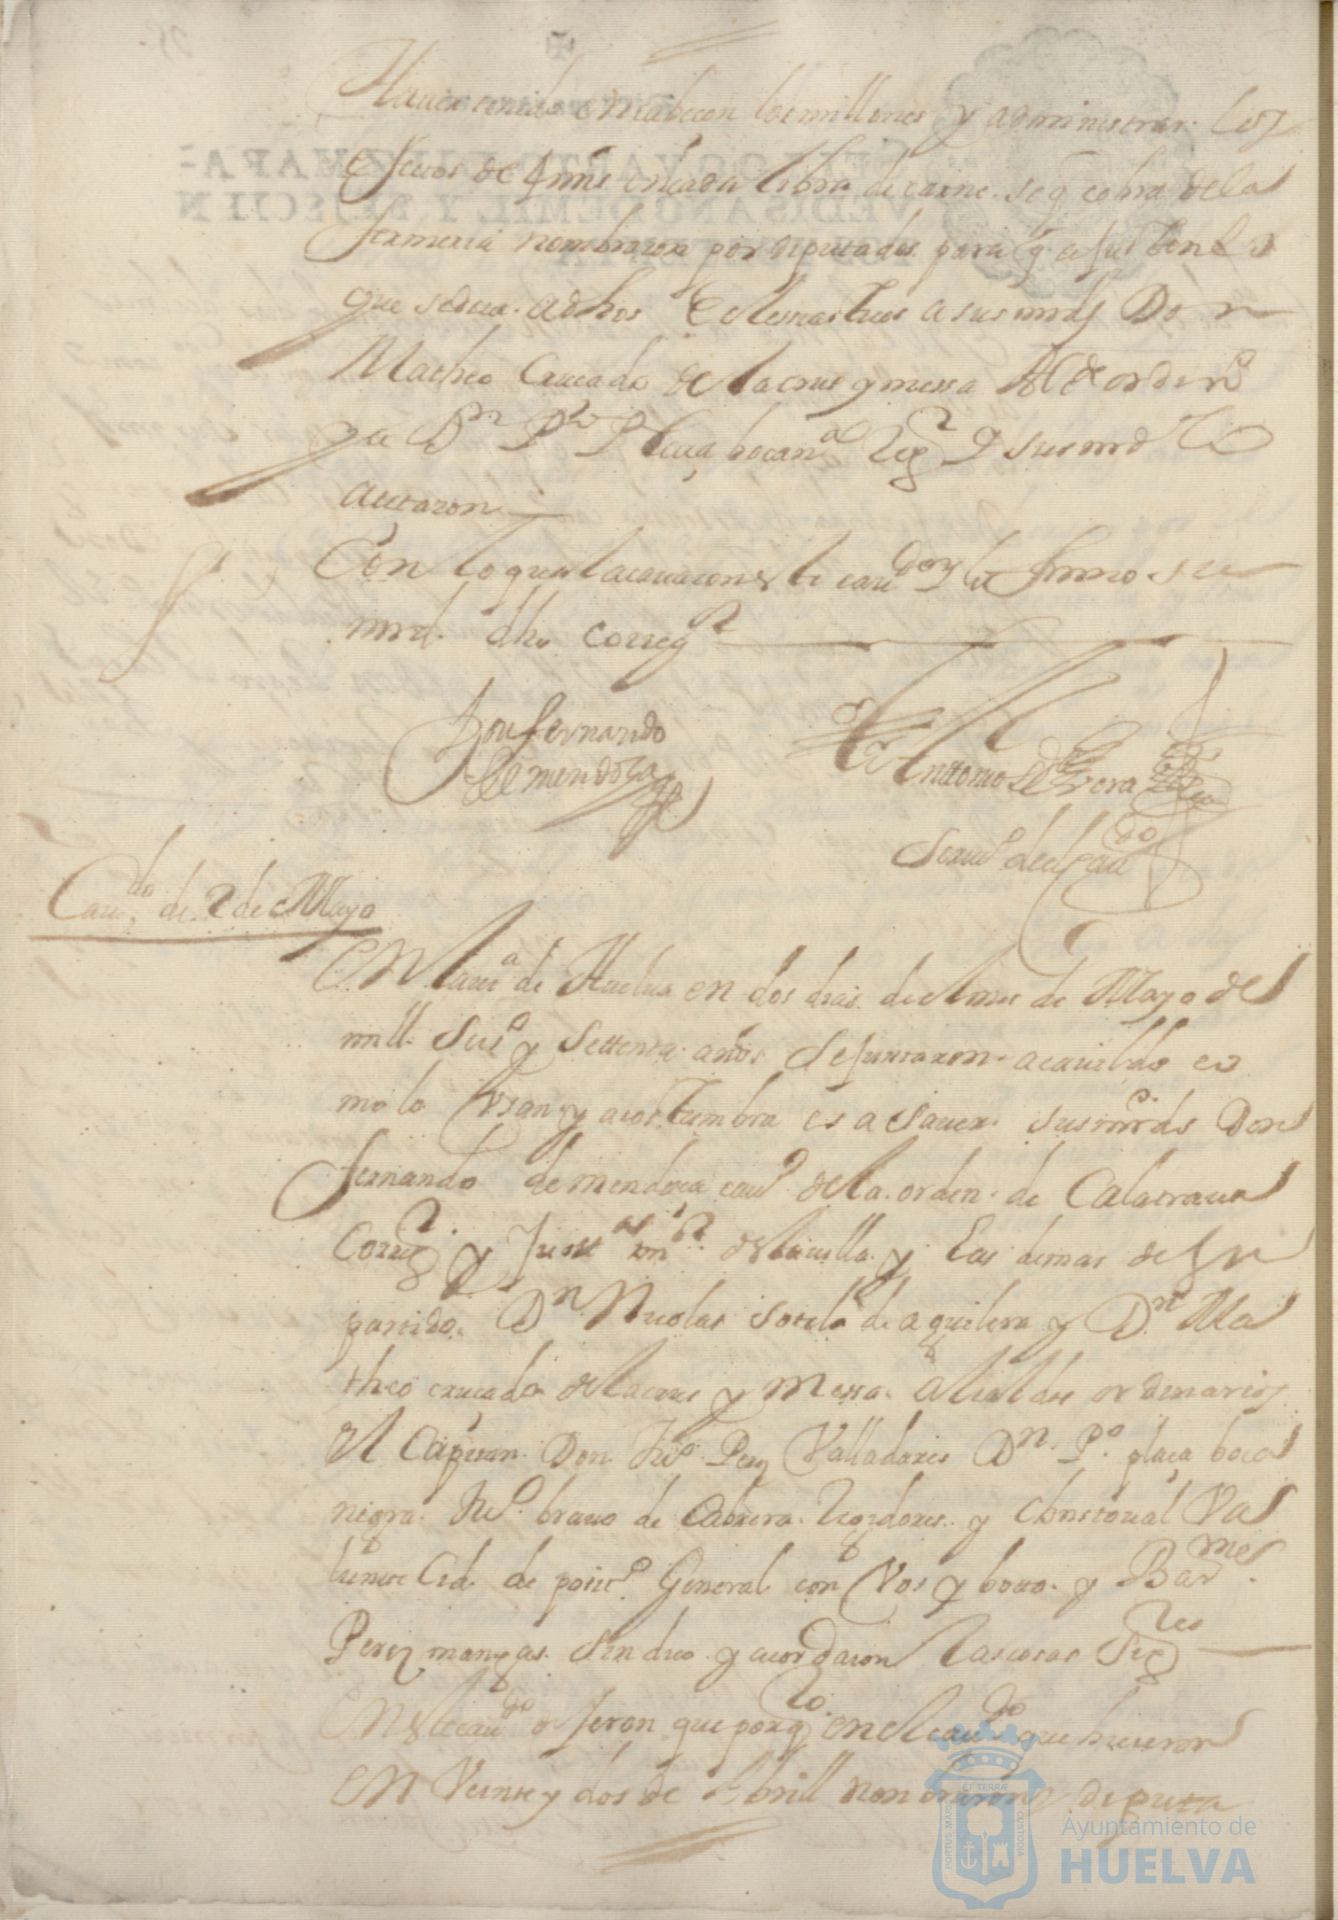 Hauer tenido encabecon los millones y administrar los
de 4 mrs en cada libra de carne se q cobra de la
nombraron por diputados para q ajusten lo
que se deua a dhos Eclesiasticos a sus mrds Don
Matheo Cruçado de la crus y messa Alcde ordinrº
y a Dn Pº Plaça bocanª Regr y sus mrds lo
açetaron
Con lo qual acauaron este caudo y lo firmo su
mrd dho corregr
Don fernando
de mendoça
Anttonio de
Scriuº del caudo
Caudo de 2 de Mayo
EN la uª de Huelua en dos dias del mes de Mayo de
mill seisº y settenta años se juntaron a cauildo co
mo lo Vsan y acostumbra es a sauer sus mrds Don
fernando de mendoça cauº de la orden de Calatraua
Corregr y Justª mr de la uilla y las demas de su
partido Dn Nicolas sotelo de aguilera y Dn Ma
theo cruçado de la crus y messa alcaldes ordinarios
el Capitan Don Juº Perez Valladares Dn Pº plaça boca
negra brauo de Cabrera Regidores y Christoual Va
liente Cid de positº General con Vos y botto y Barme
Perez mangas sindico y acordaron las cosas sigtes
EN este caudo dixeron que por qto en el caudo que hicieron
EN Veinte y dos de Abrill nonbraron diputa
Ayuntamiento de
HUELVA